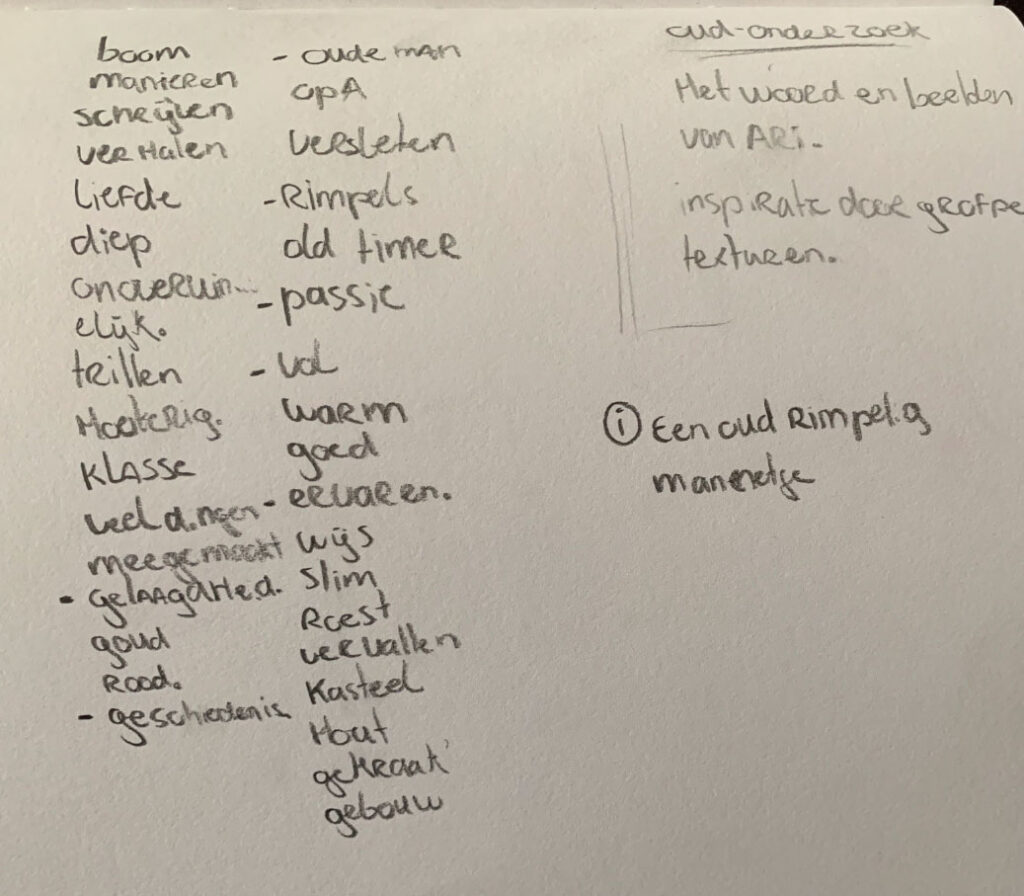 boom
manieren
verhalen
liefde
diep
elijk.
trillen
klasse
veel dingen
meegemaakt
- gelaagdheid.
goud
Rood.
- geschiedenis
- oude man
opA
versleten
- Rimpels
old timer
- passie
- vol
warm
goed
- ervaren.
wijs
slim
Roest
vervallen
kasteel
Hout
gekraak
gebouw
oud-onderzoek
Het woord en beelden
van ARi.
inspiratie door grofpe
textureen.
① Een oud Rimpelig
mannetje